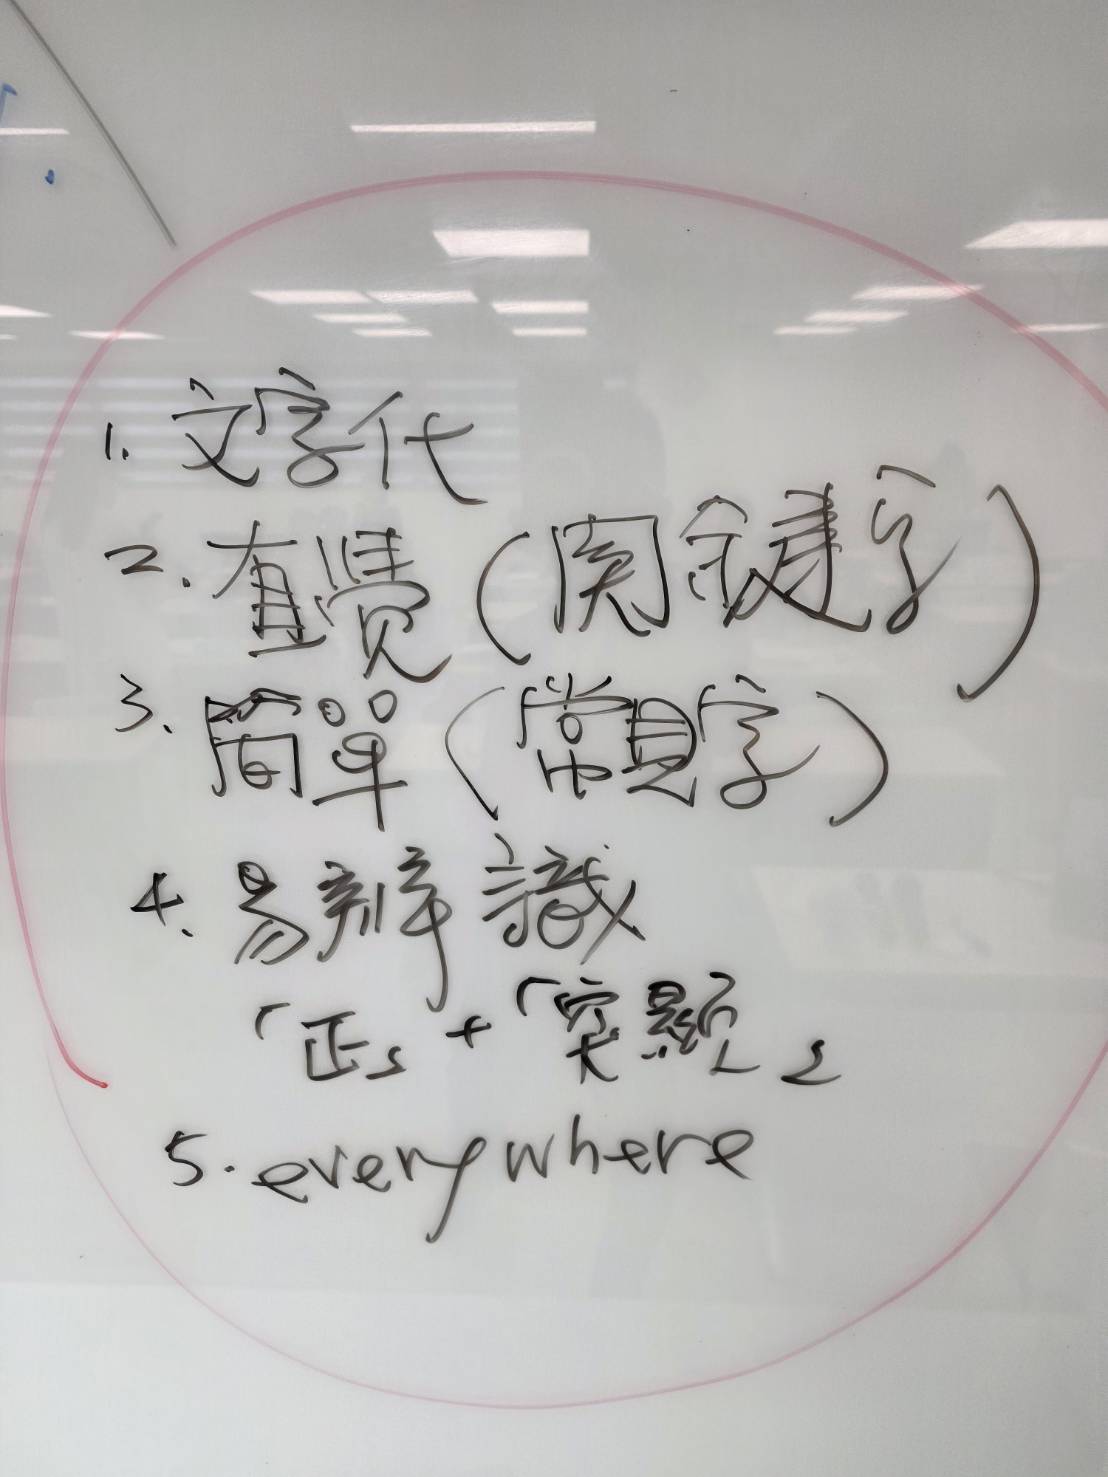 1. 文字代
2. 直覺(関鍵字)
3. 簡單(常見字)
4. 易辨識
「正」+「突顯」
5. everywhere